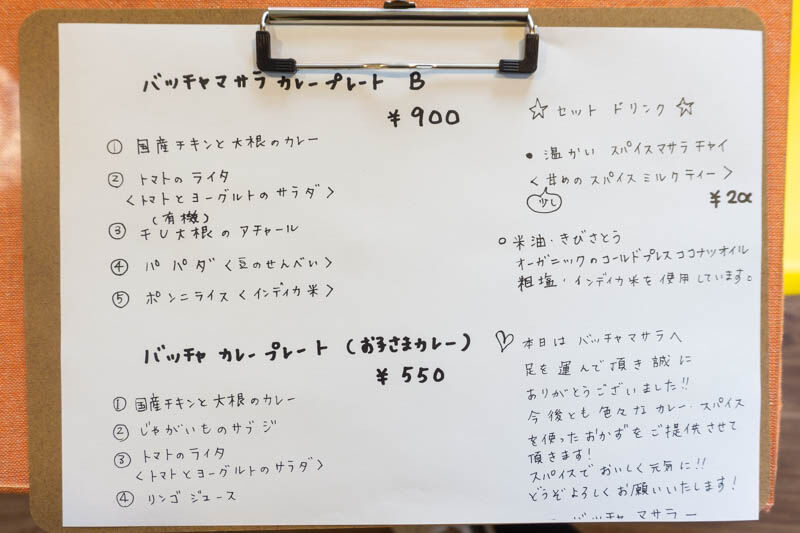 バッチャマサラ カレープレート B
¥900
① 国産チキンと大根のカレー
② トマトの ライタ
<トマトとヨーグルトのサラダ>
(有機)
③ 干し大根の アチャール
④ パパダ <豆のせんべい>
⑤ ポンニライス <インディカ米>
バッチャ カレープレート (お子さまカレー)
¥550
① 国産チキンと大根のカレー
② じゃがいものサブジ
③ トマトのライタ
<トマトとヨーグルトのサラダ>
④ リンゴジュース
☆ セット ドリンク ☆
● 温かい スパイスマサラチャイ
<甘めのスパイスミルクティー>
少し
¥200
○ 米油・きびさとう
オーガニックのコールドプレスココナツオイル
粗塩・インディカ米を使用しています。
♡ 本日は バッチャマサラへ
足を運んで頂き誠に
ありがとうございました!!
今後とも色々なカレー・スパイス
を使ったおかずをご提供させて
頂きます!
スパイスでおいしく元気に!!
どうぞよろしくお願いいたします!
バッチャマサラー